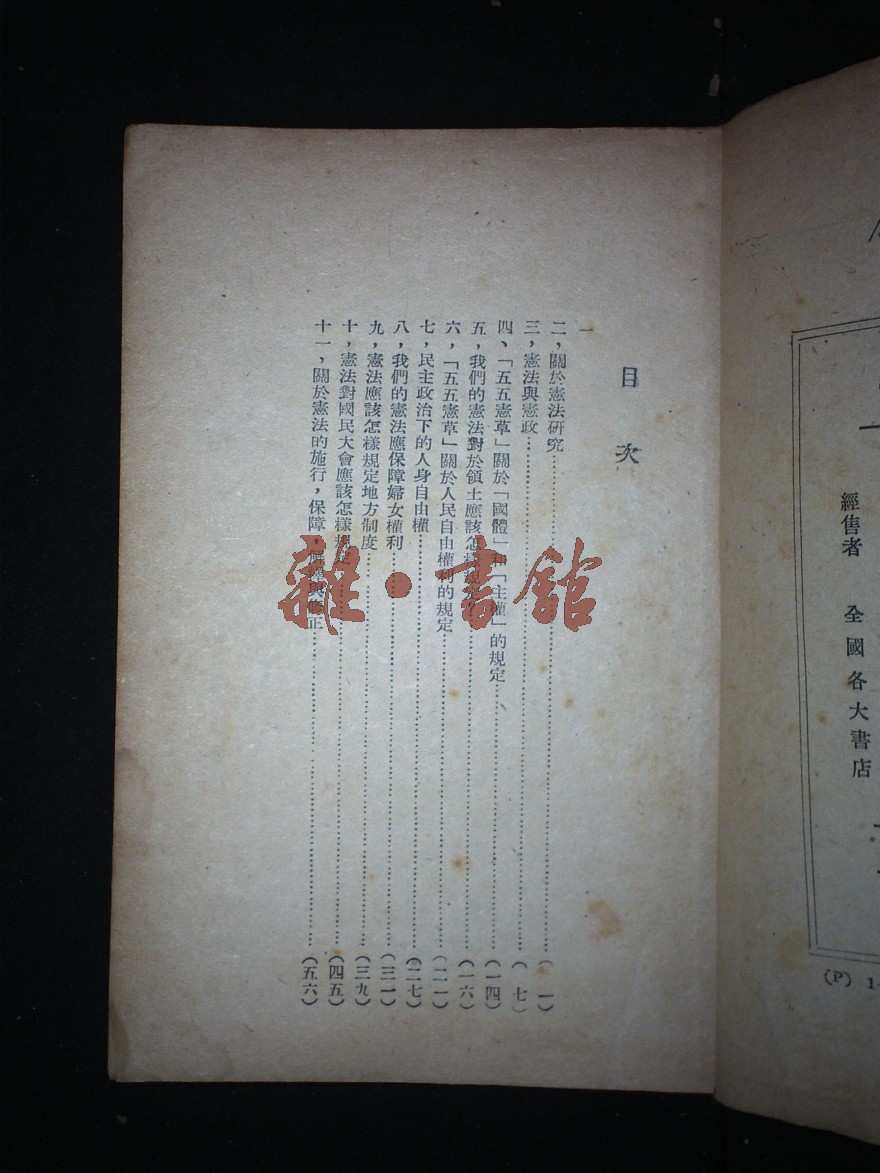 經售者 全國各大書店
(P) 1
目次
一
二，關於憲法研究……(一)
三，憲法與憲政……(七)
四、「五五憲草」關於「國體」和「主權」的規定……(一四)
五，我們的憲法對於領土應該怎樣……(一六)
六，「五五憲草」關於人民自由權利的規定……(二一)
七，民主政治下的人身自由權……(二七)
八，我們的憲法應保障婦女權利……(三一)
九，憲法應該怎樣規定地方制度……(三九)
十，憲法對國民大會應該怎樣規定……(四五)
十一，關於憲法的施行，保障，解釋與修正……(五六)
雜·書館